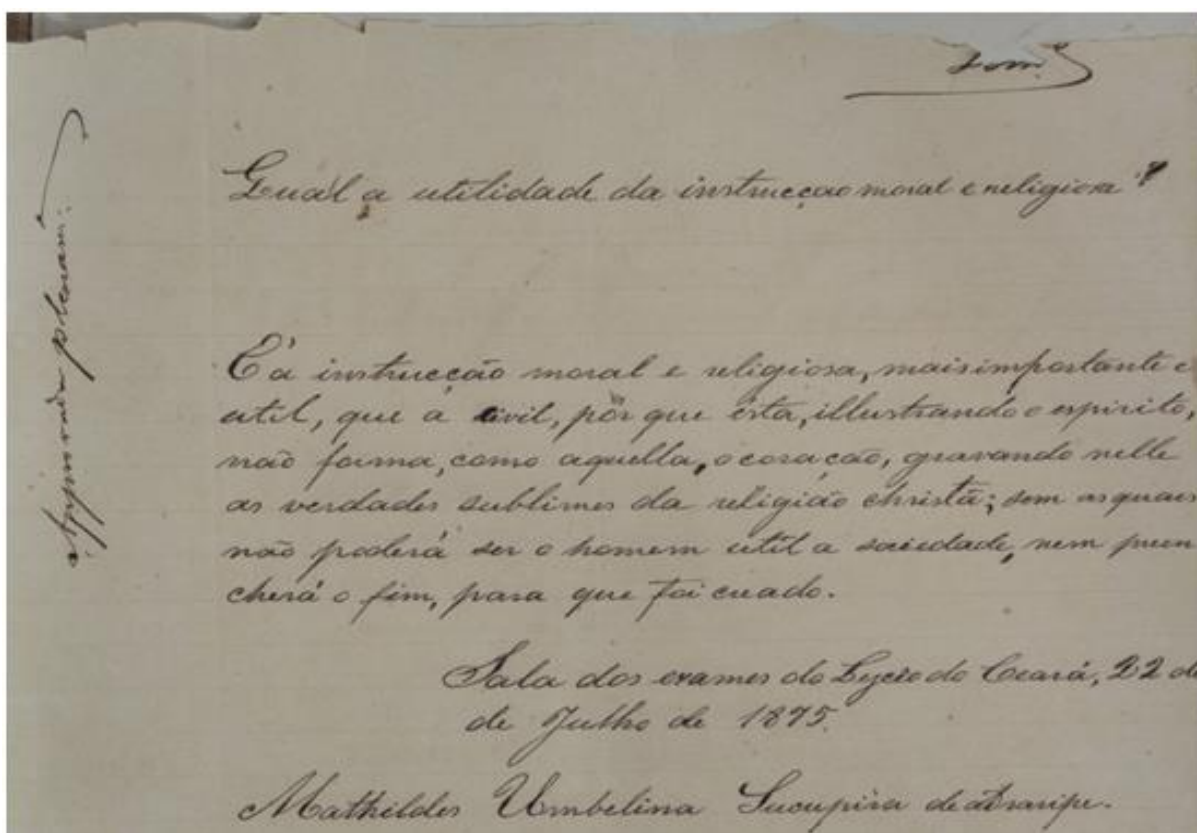 Qual a utilidade da instrucçao moral e religiosa?
É a instrucção moral e religiosa, mais importante e
util, que a civil, por que esta, illustrando o espirito,
não forma, como aquella, o coração, gravando nelle
as verdades sublimes da religião christã; sem as quaes
não poderá ser o homem util a sociedade, nem preen
cherá o fim, para que foi creado.
Sala dos exames do Lyceo do Ceará, 22 de
de Julho de 1875.
Mathildes Umbelina Sucupira de Araripe.
Approvada plenam.